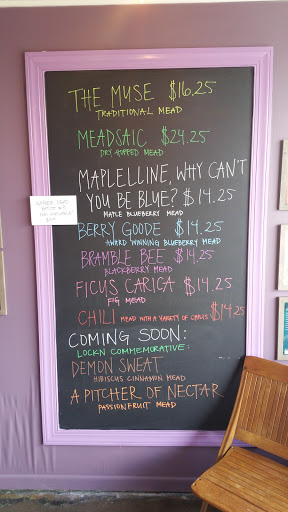 THE MUSE $16.25
TRADITIONAL MEAD
MEADSAIC $24.25
DRY HOPPED MEAD
MAPLELLINE, WHY CAN'T
YOU BE BLUE? $14.25
MAPLE BLUEBERRY MEAD
BERRY GOODE $14.25
AWARD WINNING BLUEBERRY MEAD
BRAMBLE BEE $14.25
BLACKBERRY MEAD
FICUS CARICA $14.25
FIG MEAD
CHILI MEAD WITH A VARIETY OF CHILIS $14.25
COMING SOON:
LOCKN COMMEMORATIVE:
DEMON SWEAT
HIBISCUS CINNAMON MEAD
A PITCHER OF NECTAR
PASSIONFRUIT MEAD